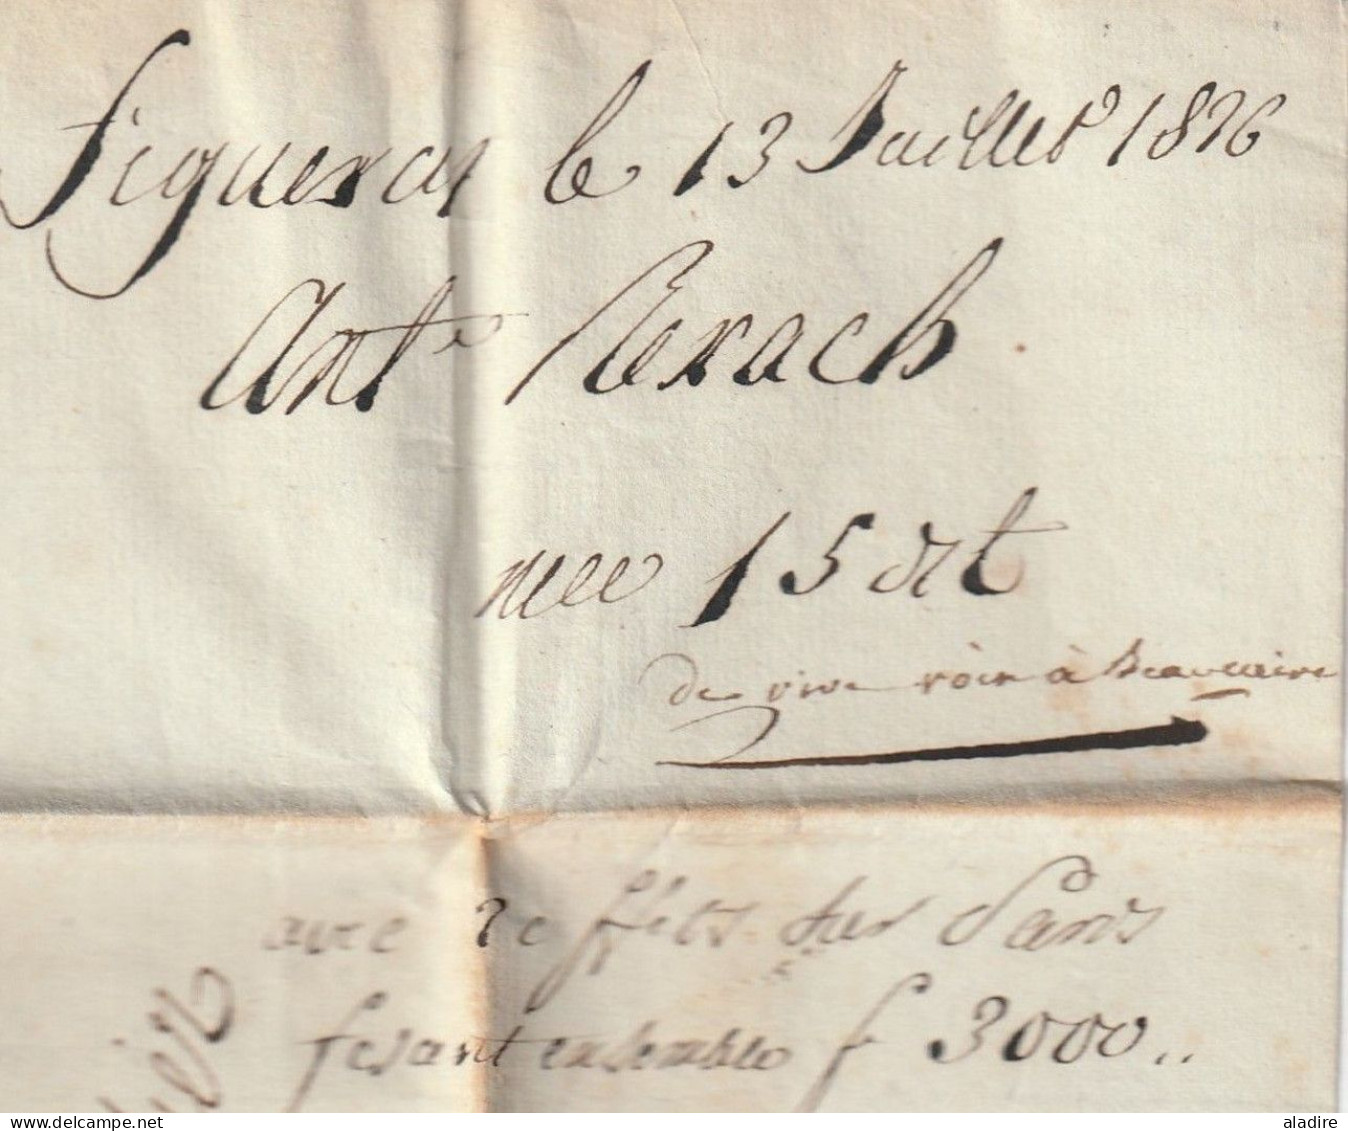 Figueras le 13 Juillet 1826
Ant.e Verach
rece 15 dt
de vive voix à Beaucaire
avec 2 effets sur Paris
fesant ensemble f 3000..
delcampe.net
aladire